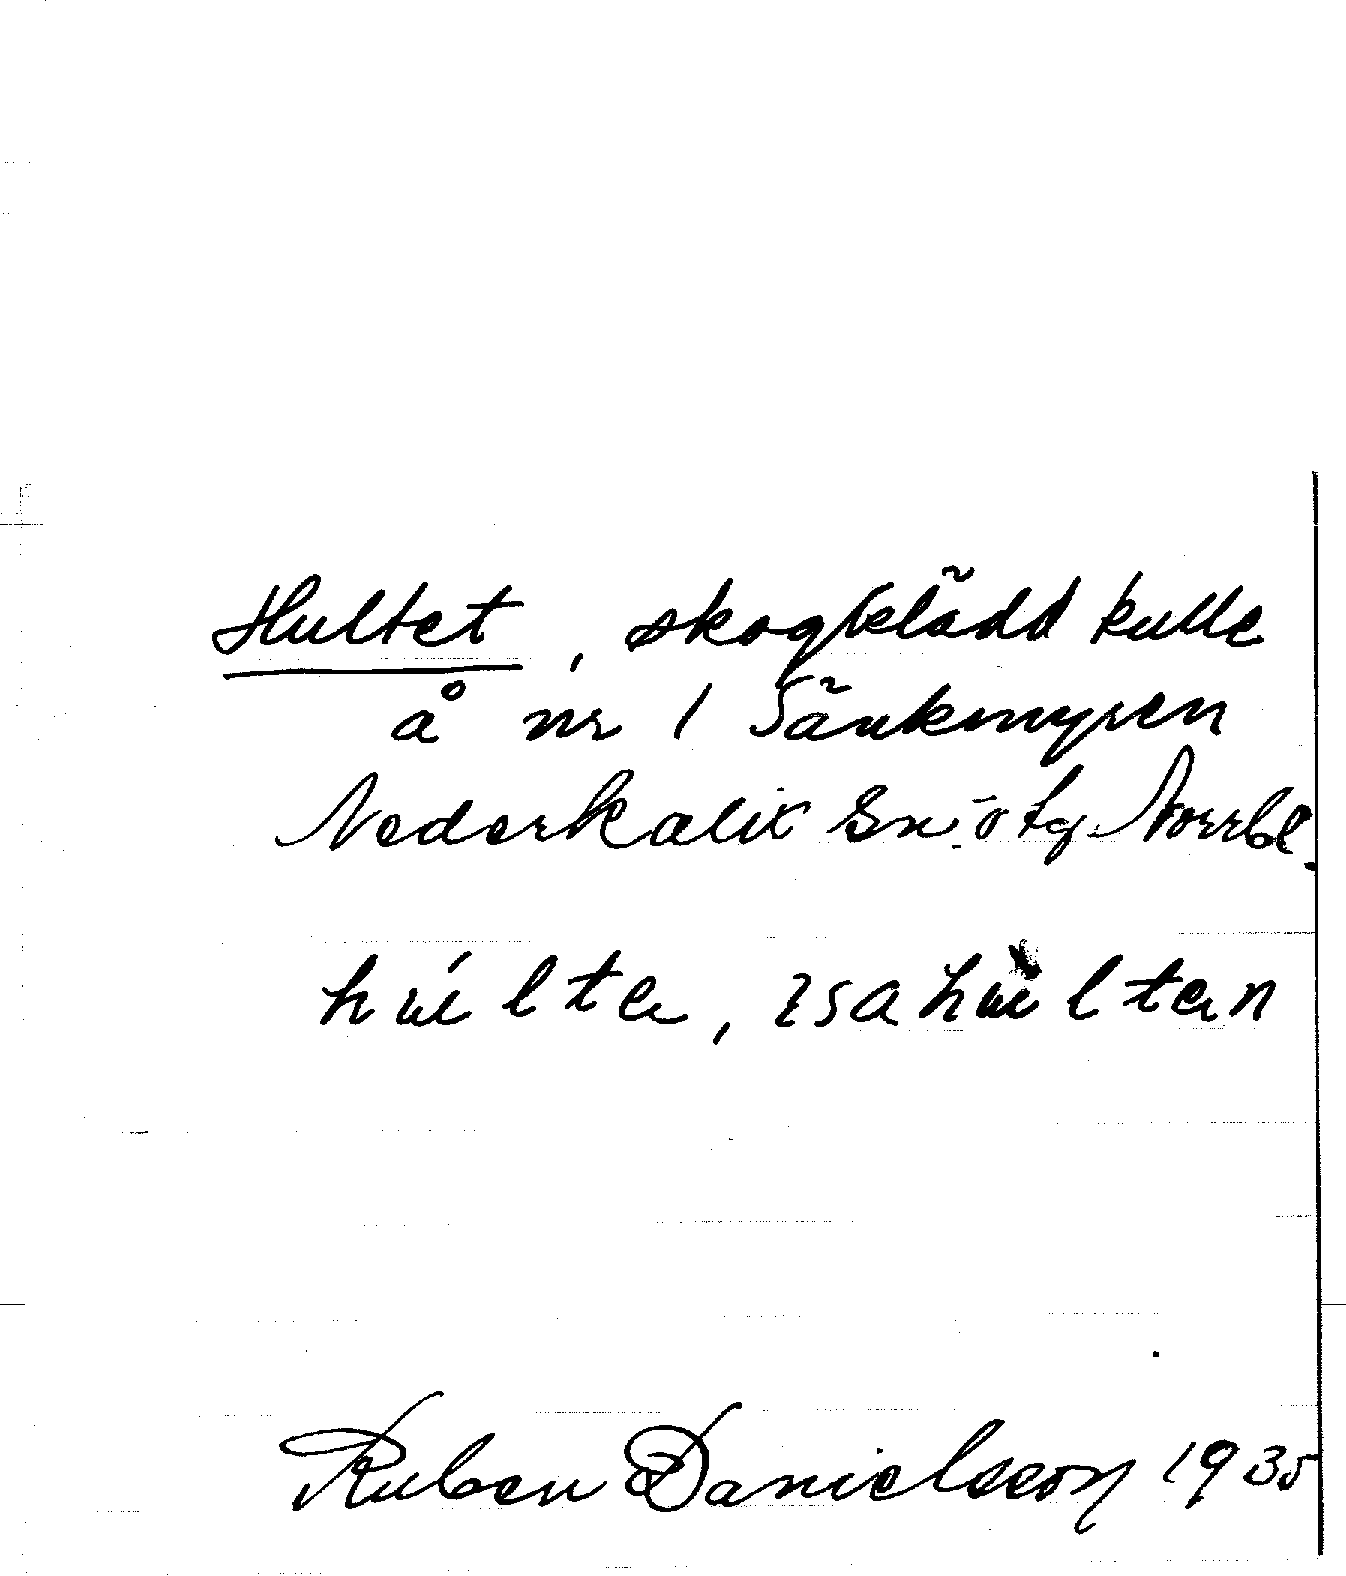 Hultet, skogklädd kulle
å nr 1 Sänkmyren
Nederkalix sn o tg Norrbl.
húlte, hùlten
Ruben Danielsson 1935